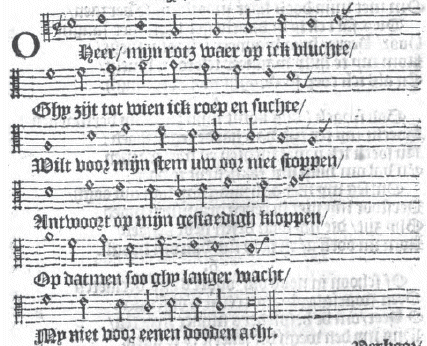 O Heer/ mijn rotz waer op ick vluchte/
Ghy zijt tot wien ick roep en suchte/
Wilt voor mijn stem uw oor niet stoppen/
Antwoort op mijn gestaedigh kloppen/
Op datmen soo ghy langer wacht/
My niet voor eenen dooden acht.
Verhoor/